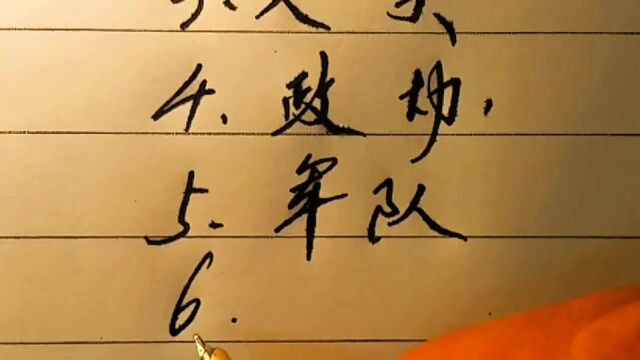 4、政协.
5.军队
6.